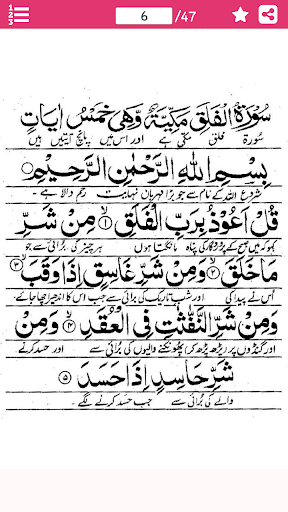 6 /47
سُوْرَةُ الْفَلَقِ مَكِّيَّةٌ وَّهِيَ خَمْسُ اٰيَاتٍ
سورۃ فلق مکی ہے اور اس میں پانچ آیتیں ہیں
بِسْمِ اللهِ الرَّحْمٰنِ الرَّحِيْمِ
شروع اللہ کے نام سے جو بڑا مہربان نہایت رحم والا ہے
قُلْ اَعُوْذُ بِرَبِّ الْفَلَقِ ۝۱ مِنْ شَرِّ
کہو کہ میں صبح کے پروردگار کی پناہ مانگتا ہوں ہر چیز کی بُرائی سے جو
مَا خَلَقَ ۝۲ وَمِنْ شَرِّ غَاسِقٍ اِذَا وَقَبَ ۝۳
اس نے پیدا کی اور شب تاریک کی بُرائی سے جب اس کا اندھیرا چھا جائے
وَمِنْ شَرِّ النَّفّٰثٰتِ فِى الْعُقَدِ ۝۴ وَمِنْ
اور گنڈوں پر پڑھ پڑھ کر پھونکنے والیوں کی بُرائی سے اور حسد کرنے
شَرِّ حَاسِدٍ اِذَا حَسَدَ ۝۵
والے کی بُرائی سے جب حسد کرنے لگے